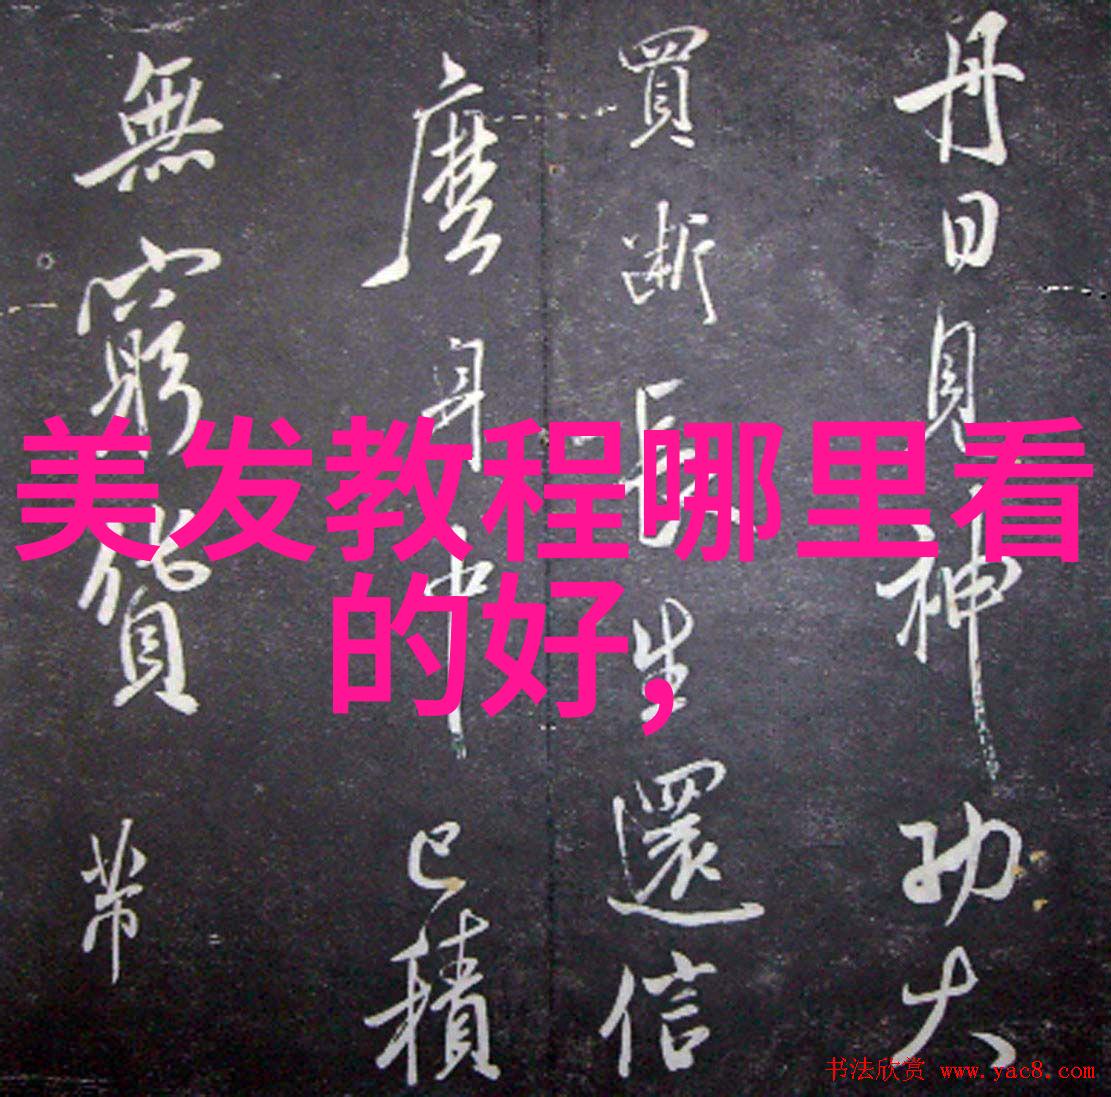 丹日見神功大
買斷長生還信
麽身中已積
無窮貨
常
美发教程哪里看
的好,
书法欣赏 www.yac8.com